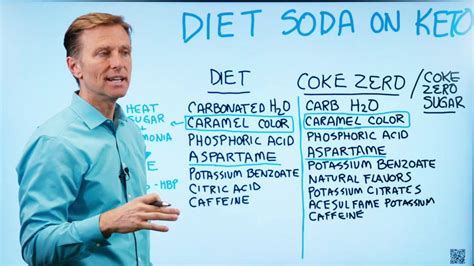 DIET SODA ON KETO
DIET
CARBONATED H2O
CARAMEL COLOR
PHOSPHORIC ACID
ASPARTAME
POTASSIUM BENZOATE
CITRIC ACID
CAFFEINE
COKE ZERO / COKE ZERO SUGAR
CARB H2O
CARAMEL COLOR
PHOSPHORIC ACID
ASPARTAME
POTASSIUM BENZOATE
NATURAL FLAVORS
POTASSIUM CITRATES
ACESULFAME POTASSIUM
CAFFEINE
HEAT
SUGAR
+
MBP